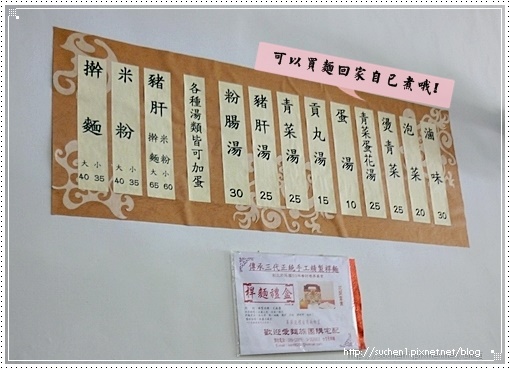 可以買麵回家自己煮哦!
擀麵 大40 小35
米粉 大40 小35
豬肝 擀麵大65 米粉小60
各種湯類皆可加蛋
粉腸湯 30
豬肝湯 25
青菜湯 25
貢丸湯 15
蛋湯 10
青菜蛋花湯 25
燙青菜 25
泡菜 20
滷味 30
傳承三代正統手工精製桿麵
桿麵禮盒
http://suchen1.pixnet.net/blog